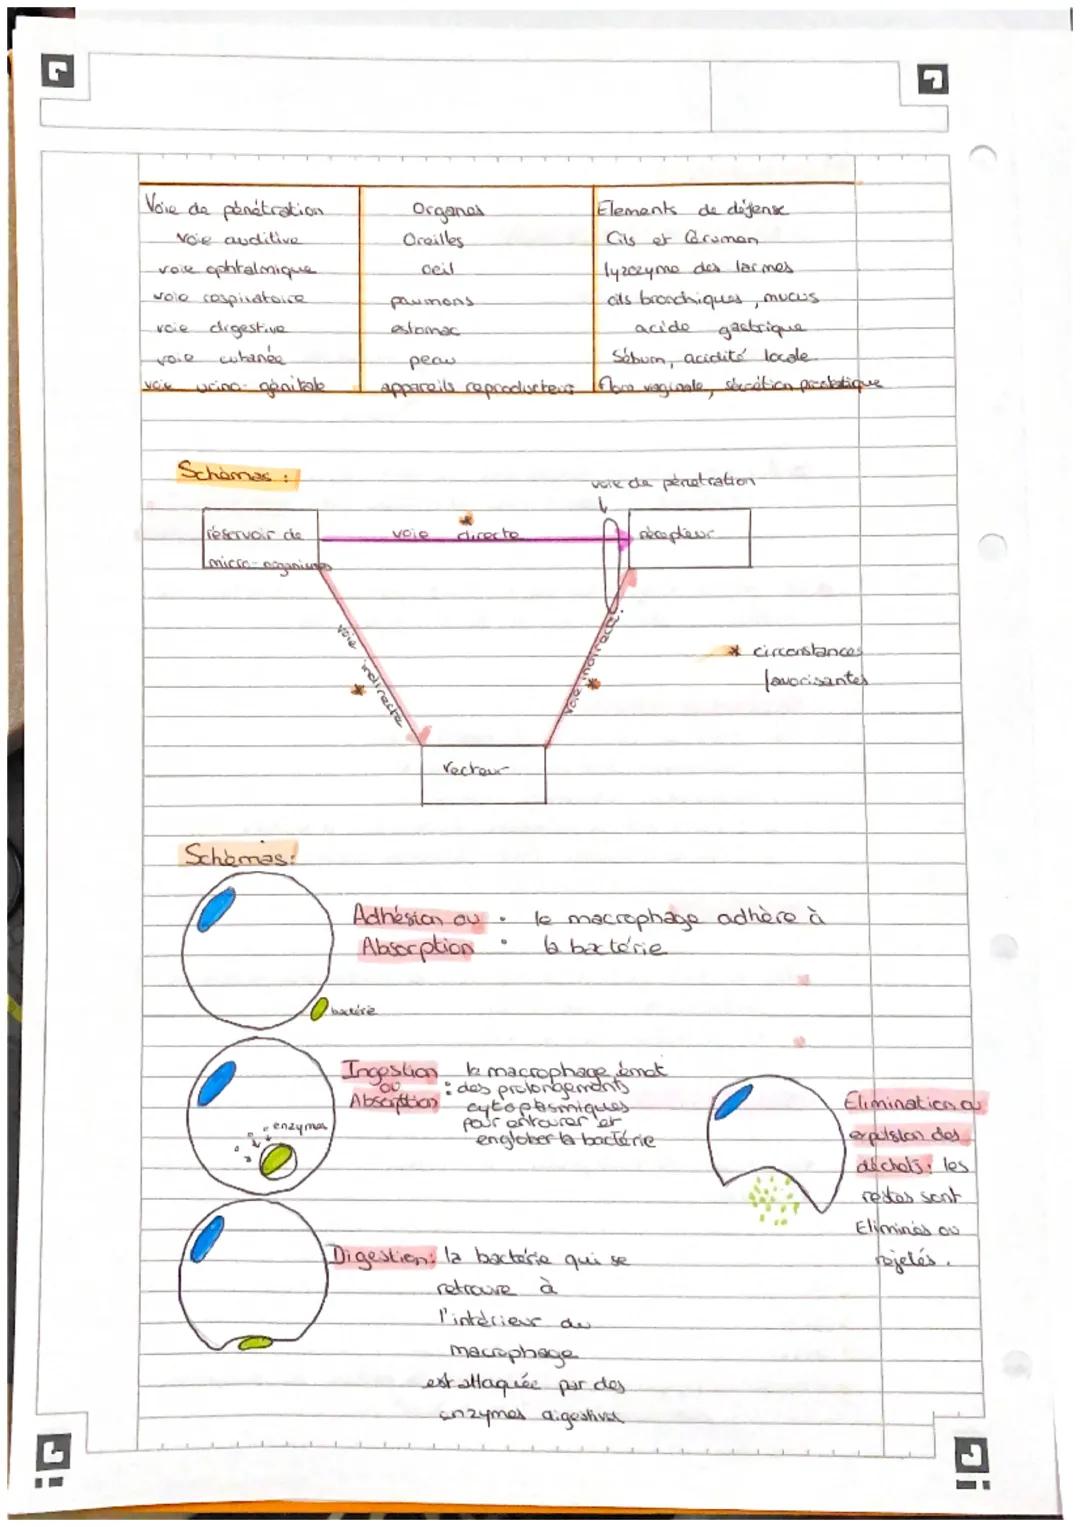 Voie de pénétration Organes Elements de défense
voie auditive Oreilles Cils et Cérumen
voie ophtalmique oeil lyzozyme des larmes
voie respiratoire poumons cils bronchiques, mucus
voie digestive estomac acide gastrique
voie cutanée peau Sébum, acidité locale
voie urino-génitale appareils reproducteurs flore vaginale, sécrétion prostatique
Schémas :
voie de pénetration
réservoir de
micro-organismes
voie directe
récepteur
voie indirecte
voie indirecte
* circonstances
favorisantes
Vecteur
Schémas:
Adhésion ou : le macrophage adhère à
Absorption la bactérie
bactérie
Ingestion
ou
Absorption
: le macrophage émet
des prolongements
cytoplasmiques
pour entourer et
englober la bactérie
enzymes
Elimination ou
expulsion des
déchets: les
restes sont
Eliminés ou
rejetés.
Digestion: la bactérie qui se
retrouve à
l'intérieur du
macrophage
est attaquée par des
enzymes digestives